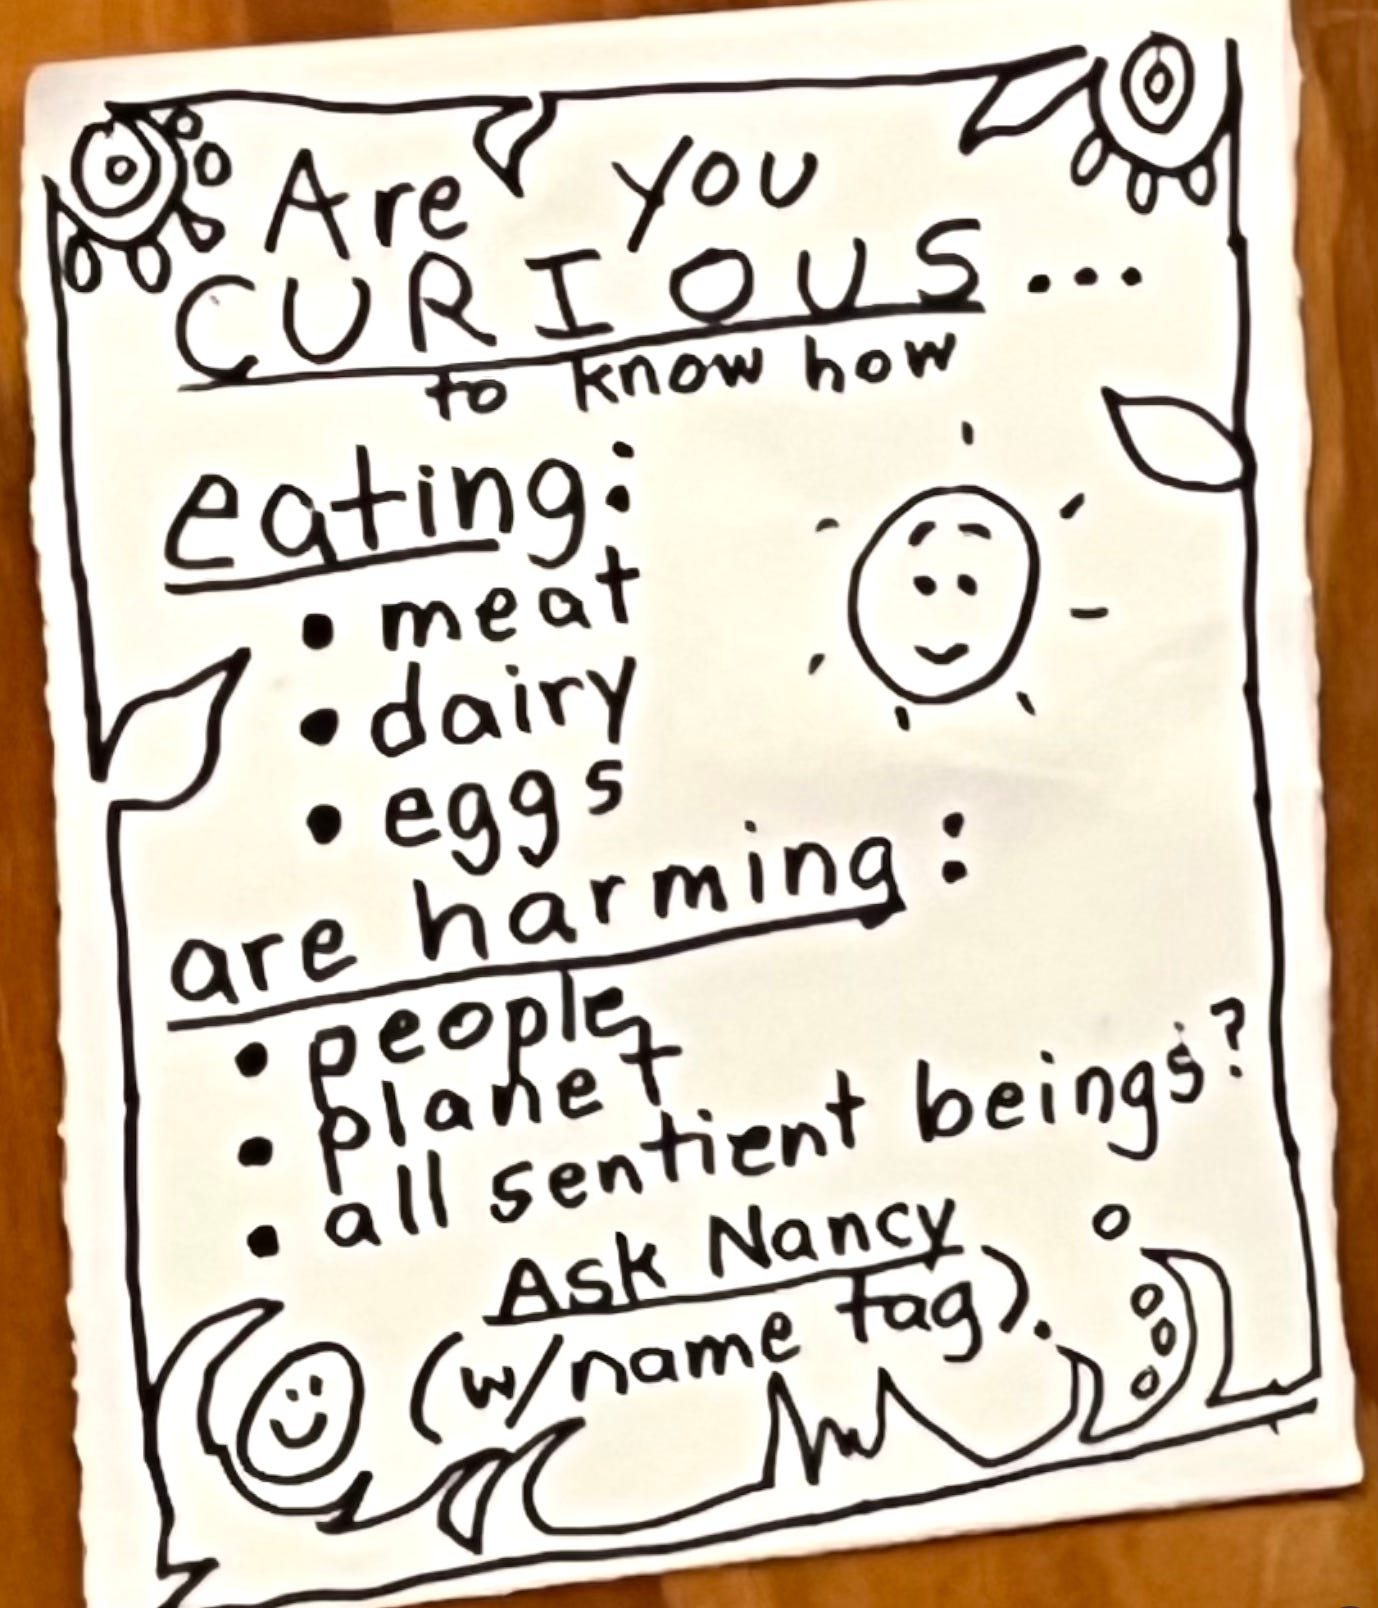 Are you
CURIOUS...
to know how
eating:
• meat
• dairy
• eggs
are harming:
• people
• planet
• all sentient beings?
Ask Nancy
(w/name tag).